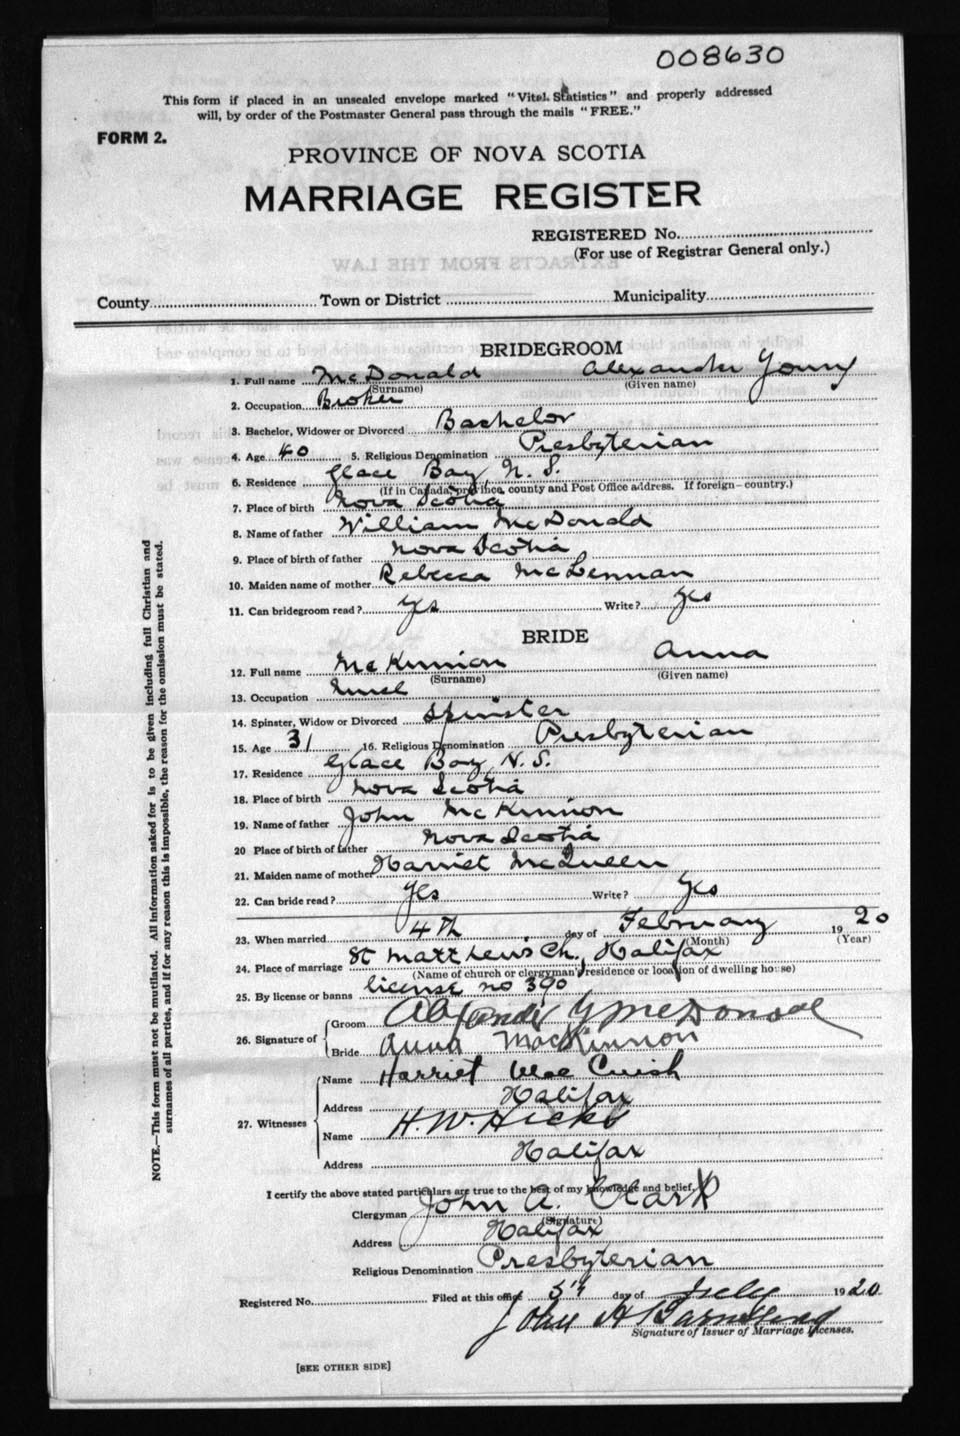 008630
This form if placed in an unsealed envelope marked "Vital Statistics" and properly addressed
will, by order of the Postmaster General pass through the mails "FREE."
FORM 2.
PROVINCE OF NOVA SCOTIA
MARRIAGE REGISTER
REGISTERED No.
(For use of Registrar General only.)
County Town or District Municipality
BRIDEGROOM
1. Full name McDonald Alexander Young
(Surname) (Given name)
2. Occupation Broker
3. Bachelor, Widower or Divorced Bachelor
4. Age 40 5. Religious Denomination Presbyterian
6. Residence Glace Bay N. S.
(If in Canada, province, county and Post Office address. If foreign—country.)
7. Place of birth Nova Scotia
8. Name of father William McDonald
9. Place of birth of father Nova Scotia
10. Maiden name of mother Rebecca McLennan
11. Can bridegroom read? Yes Write? Yes
BRIDE
12. Full name McKinnion Anna
(Surname) (Given name)
13. Occupation
14. Spinster, Widow or Divorced Spinster
15. Age 31 16. Religious Denomination Presbyterian
17. Residence Glace Bay, N. S.
18. Place of birth Nova Scotia
19. Name of father John McKinnion
20 Place of birth of father Nova Scotia
21. Maiden name of mother Harriet McQueen
22. Can bride read? Yes Write? Yes
23. When married 4th day of February 1920
(Month) (Year)
24. Place of marriage St Matthews Ch., Halifax
(Name of church or clergyman's residence or location of dwelling house)
25. By license or banns license no 390
26. Signature of
Groom Alexander Y McDonald
Bride Anna MacKinnon
27. Witnesses
Name Harriet Mac Cuish
Address Halifax
Name H. W. Hicks
Address Halifax
I certify the above stated particulars are true to the best of my knowledge and belief,
Clergyman John A. Clark
(Signature)
Address Halifax
Religious Denomination Presbyterian
Registered No. Filed at this office 5th day of July 1920
John A
Signature of Issuer of Marriage Licenses.
[SEE OTHER SIDE]
NOTE.—This form must not be mutilated. All information asked for is to be given including full Christian and
surnames of all parties, and if for any reason this is impossible, the reason for the omission must be stated.